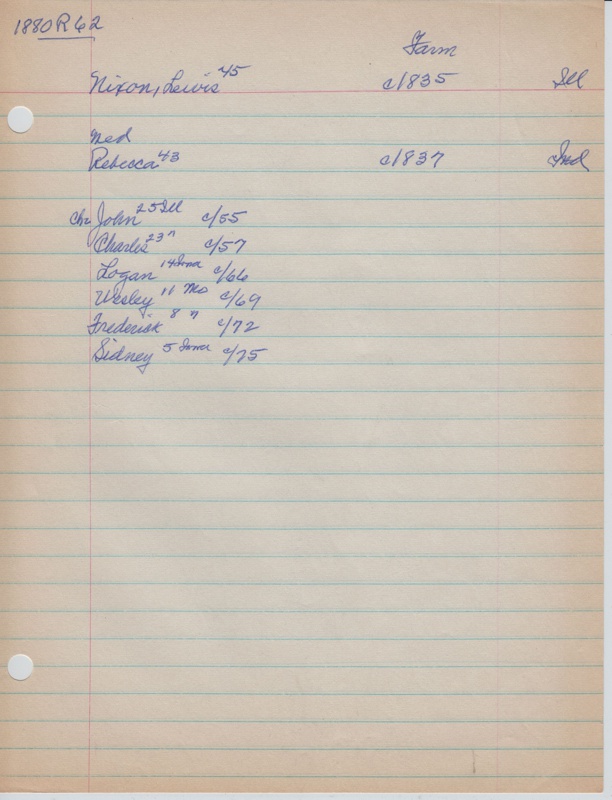 1880 R 62
Farm
Nixon, Lewis 45 c/1835 Ill
Med
Rebecca 43 c/1837 Ind
Ch: John 25 Ill c/55
Charles 23 " c/57
Logan 14 Iowa c/66
Wesley 11 Mo c/69
Frederick 8 " c/72
Sidney 5 Iowa c/75